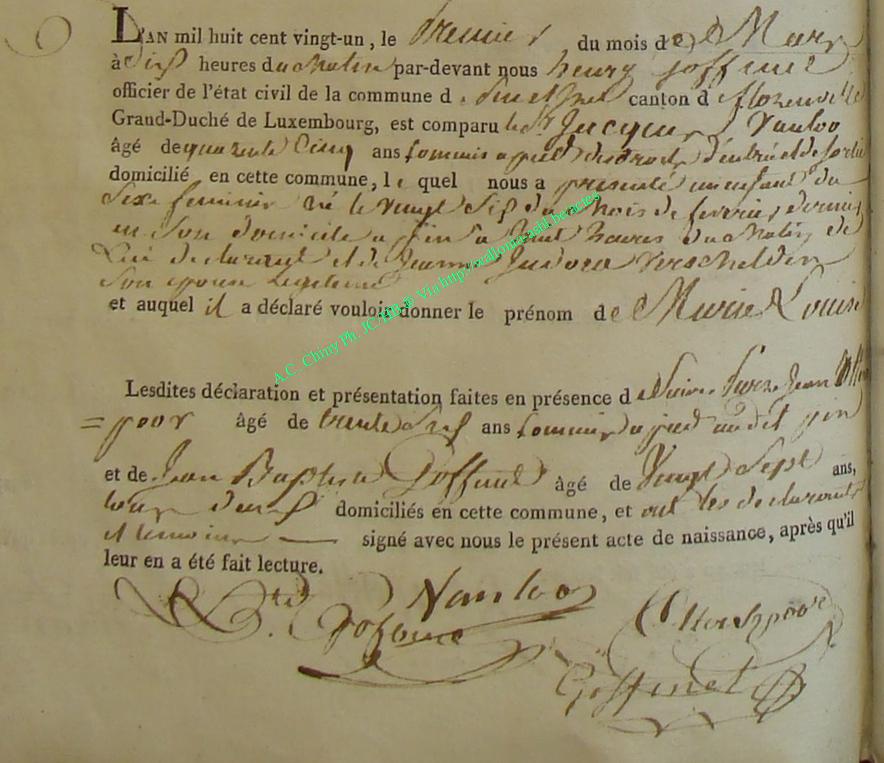 L'AN mil huit cent vingt-un, le Premier du mois de Mars
à Dix heures du Matin par-devant nous henry Goffinet
officier de l'état civil de la commune d canton d florenville
Grand-Duché de Luxembourg, est comparu le Sr Jacques Vanloo
âgé de quarente Cinq ans Commis a pied des droits d'entrée et de sortie
domicilié en cette commune, le quel nous a presenté un enfant du
Sexe feminin né le vingt Six du Mois de fevrier dernier
en Son domicile a pin a huit heures du Matin de
Lui declarant et de Jeanne Verschelden
Son epouse Legitime
et auquel il a déclaré vouloir donner le prénom de Marie Louise
Lesdites déclaration et présentation faites en présence de Jean
= poor âgé de trente Six ans Commis a pied au dit pin
et de Jean Baptiste Goffinet âgé de Vingt Sept ans,
tous deux domiciliés en cette commune, et ont les declarants
et temoins signé avec nous le présent acte de naissance, après qu'il
leur en a été fait lecture.
Vanloo
J. Bte Goffinet
Goffinet
A.C. Chiny Ph. JC HB @ Via http://walloniabasht.be/actes